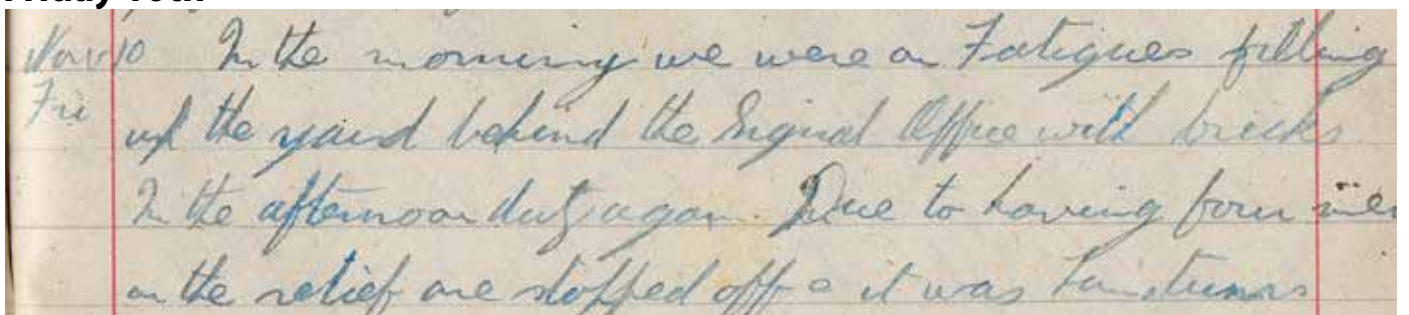 Friday 10th
Nov 10 In the morning we were on Fatigues filling
Fri up the yard behind the Signal Office with bricks
In the afternoon duty again. Due to having four men
on the relief one stopped off & it was